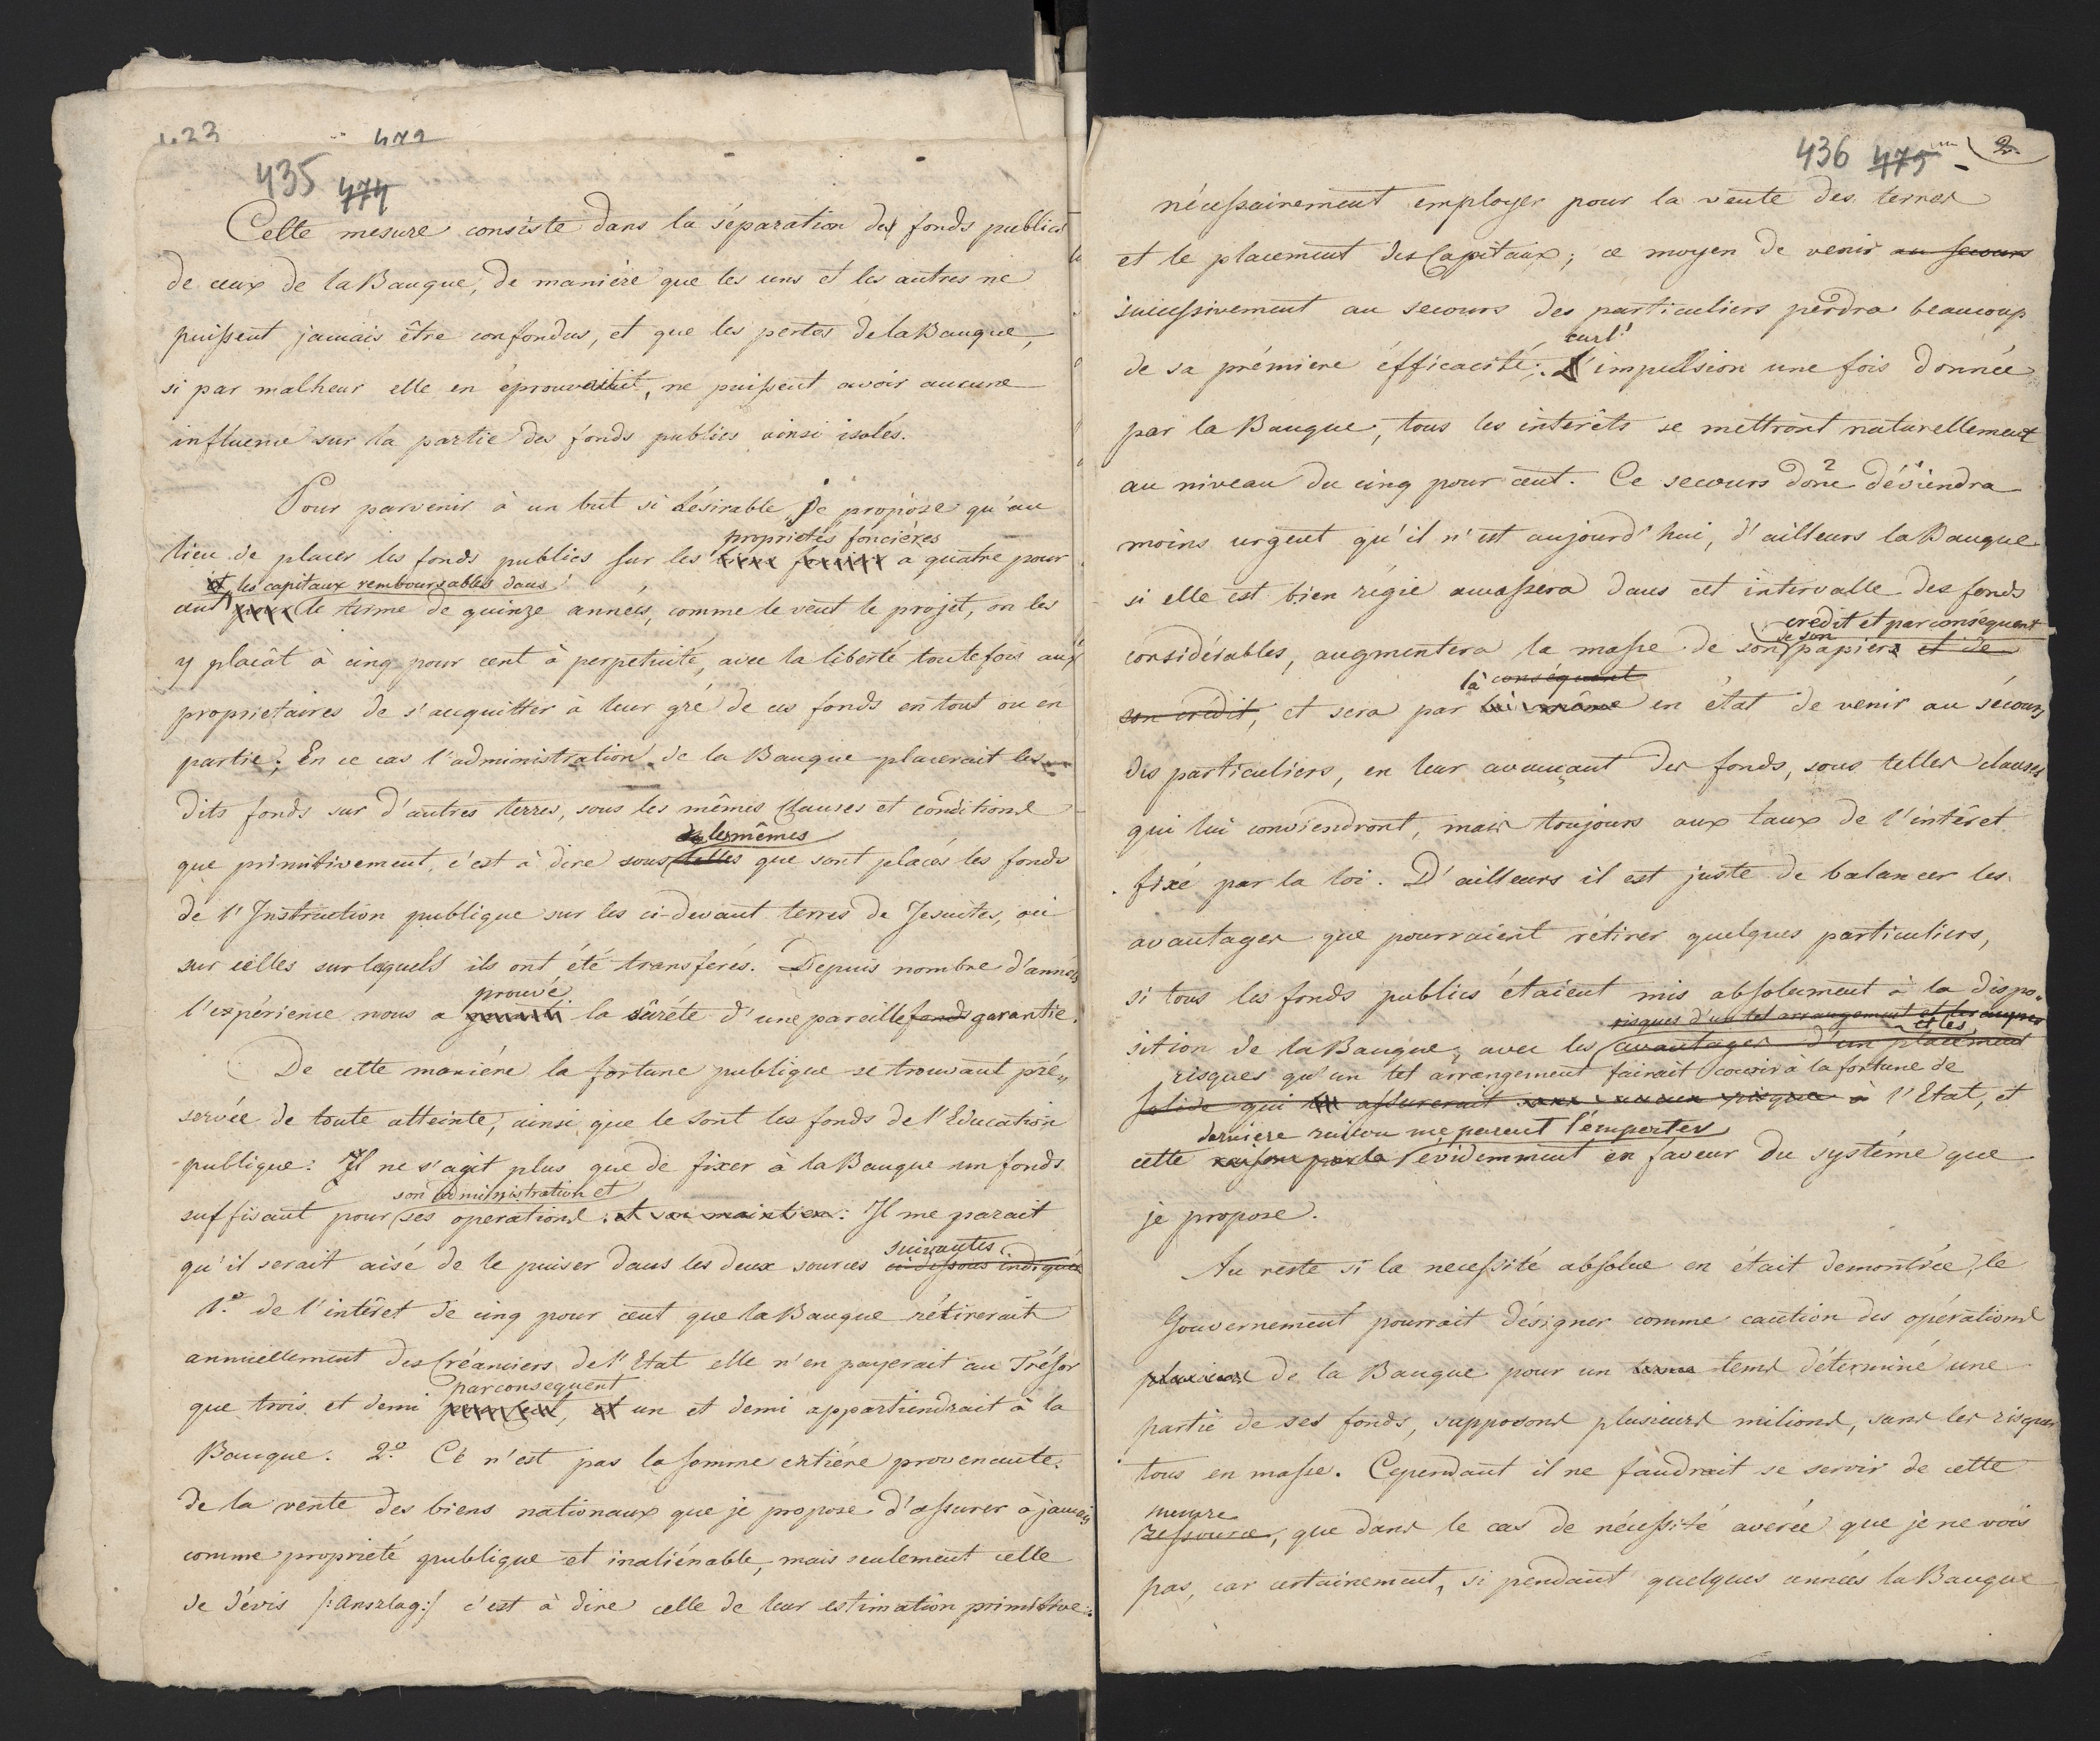 423 472
435 474
Cette mesure consiste dans la séparation des fonds publics
de ceux de la Banque, de maniére que les uns et les autres ne
puissent jamais être confondus, et que les pertes de la Banque,
si par malheur elle en éprouvait, ne puissent avoir aucune
influence sur la partie des fonds publics ainsi isolés.
Pour parvenir à un but si désirable, Je propose qu'au
propriétés foncières
lieu de placer les fonds publics sur les biens fonciers a quatre pour
et les capitaux remboursables dans
cent pour le terme de quinze années, comme le veut le projet, on les
y placât à cinq pour cent à perpetuité, avec la liberté toutefois aux
proprietaires de s'acquitter à leur gré de ces fonds en tout ou en
partie; En ce cas l'administration de la Banque placerait les
dits fonds sur d'autres terres, sous les mêmes Clauses et conditions
les mêmes
que primitivement, c'est à dire sous telles que sont placés les fonds
de l'Instruction publique sur les ci-devant terres de Jesuites, ou
sur celles sur lequels ils ont été transferés. Depuis nombre d'années
prouvé
l'expérience nous a garanti la sûréte d'une pareille fonds garantie.
De cette maniére la fortune publique se trouvant pré„
servée de toute atteinte, ainsi que le sont les fonds de l'Education
publique: Il ne s'agit plus que de fixer à la Banque un fonds
son administration et
suffisant pour ses operations et son maintien: Il me parait
suivantes
qu'il serait aisé de le puiser dans les deux sources ci-dessous indiquées
1.° de l'intêret de cinq pour cent que la Banque rétirerait
annuellement des Créanciers de l'Etat elle n'en payerait au Trésor
par consequent
que trois et demi pour cent, et un et demi appartiendrait à la
Banque. 2.° Ce n'est pas la somme entiére provenante
de la vente des biens nationaux que je propose d'assurer à jamais
comme propriété publique et inaliénable, mais seulement celle
de dévis /:Anszlag:/ c'est à dire celle de leur estimation primitive:
436 475 2.
nécessairement employer pour la vente des terres
et le placement des Capitaux; ce moyen de venir au secours
successivement au secours des particuliers perdra beaucoup
car l'
de sa prémiere éfficacité; L'impulsion une fois donnée
par la Banque, tous les intérêts se mettront naturellement
au niveau du cinq pour cent. Ce secours donc déviendra
moins urgent qu'il n'est aujourd'hui, d'ailleurs la Banque
si elle est bien régie amassera dans cet intervalle des fonds
crédit et par conséquent
de son
considérables, augmentera la masse de son papiers et de
là conséquent
son crédit, et sera par lui même en état de venir au sécours
des particuliers, en leur avançant des fonds, sous telles clauses
qui lui conviendront, mais toujours aux taux de l'intêret
fixé par la loi. D'ailleurs il est juste de balancer les
avantages que pourraient rétirer quelques particuliers,
si tous les fonds publics étaient mis absolument à la dispo„
risques d'un tel arrangement et les
et les
sition de la Banque, avec les avantages d'un placement
risques qu'un tel arrangement fairait courir à la fortune de
solide qui assurerait à l'Etat, et
derniere raison me parait l'emporter
cette raison parle évidemment en faveur du systéme que
je propose.
Au reste si la necessité absolue en était demontrée, le
Gouvernement pourrait désigner comme caution des opérations
de la Banque pour un terme tems déterminé une
partie de ses fonds, supposons plusieurs milions, sans les risquer
tous en masse. Cependant il ne faudrait se servir de cette
mesure
ressource, que dans le cas de nécessité averée que je ne vois
pas, car certainement, si pendant quelques années la Banque